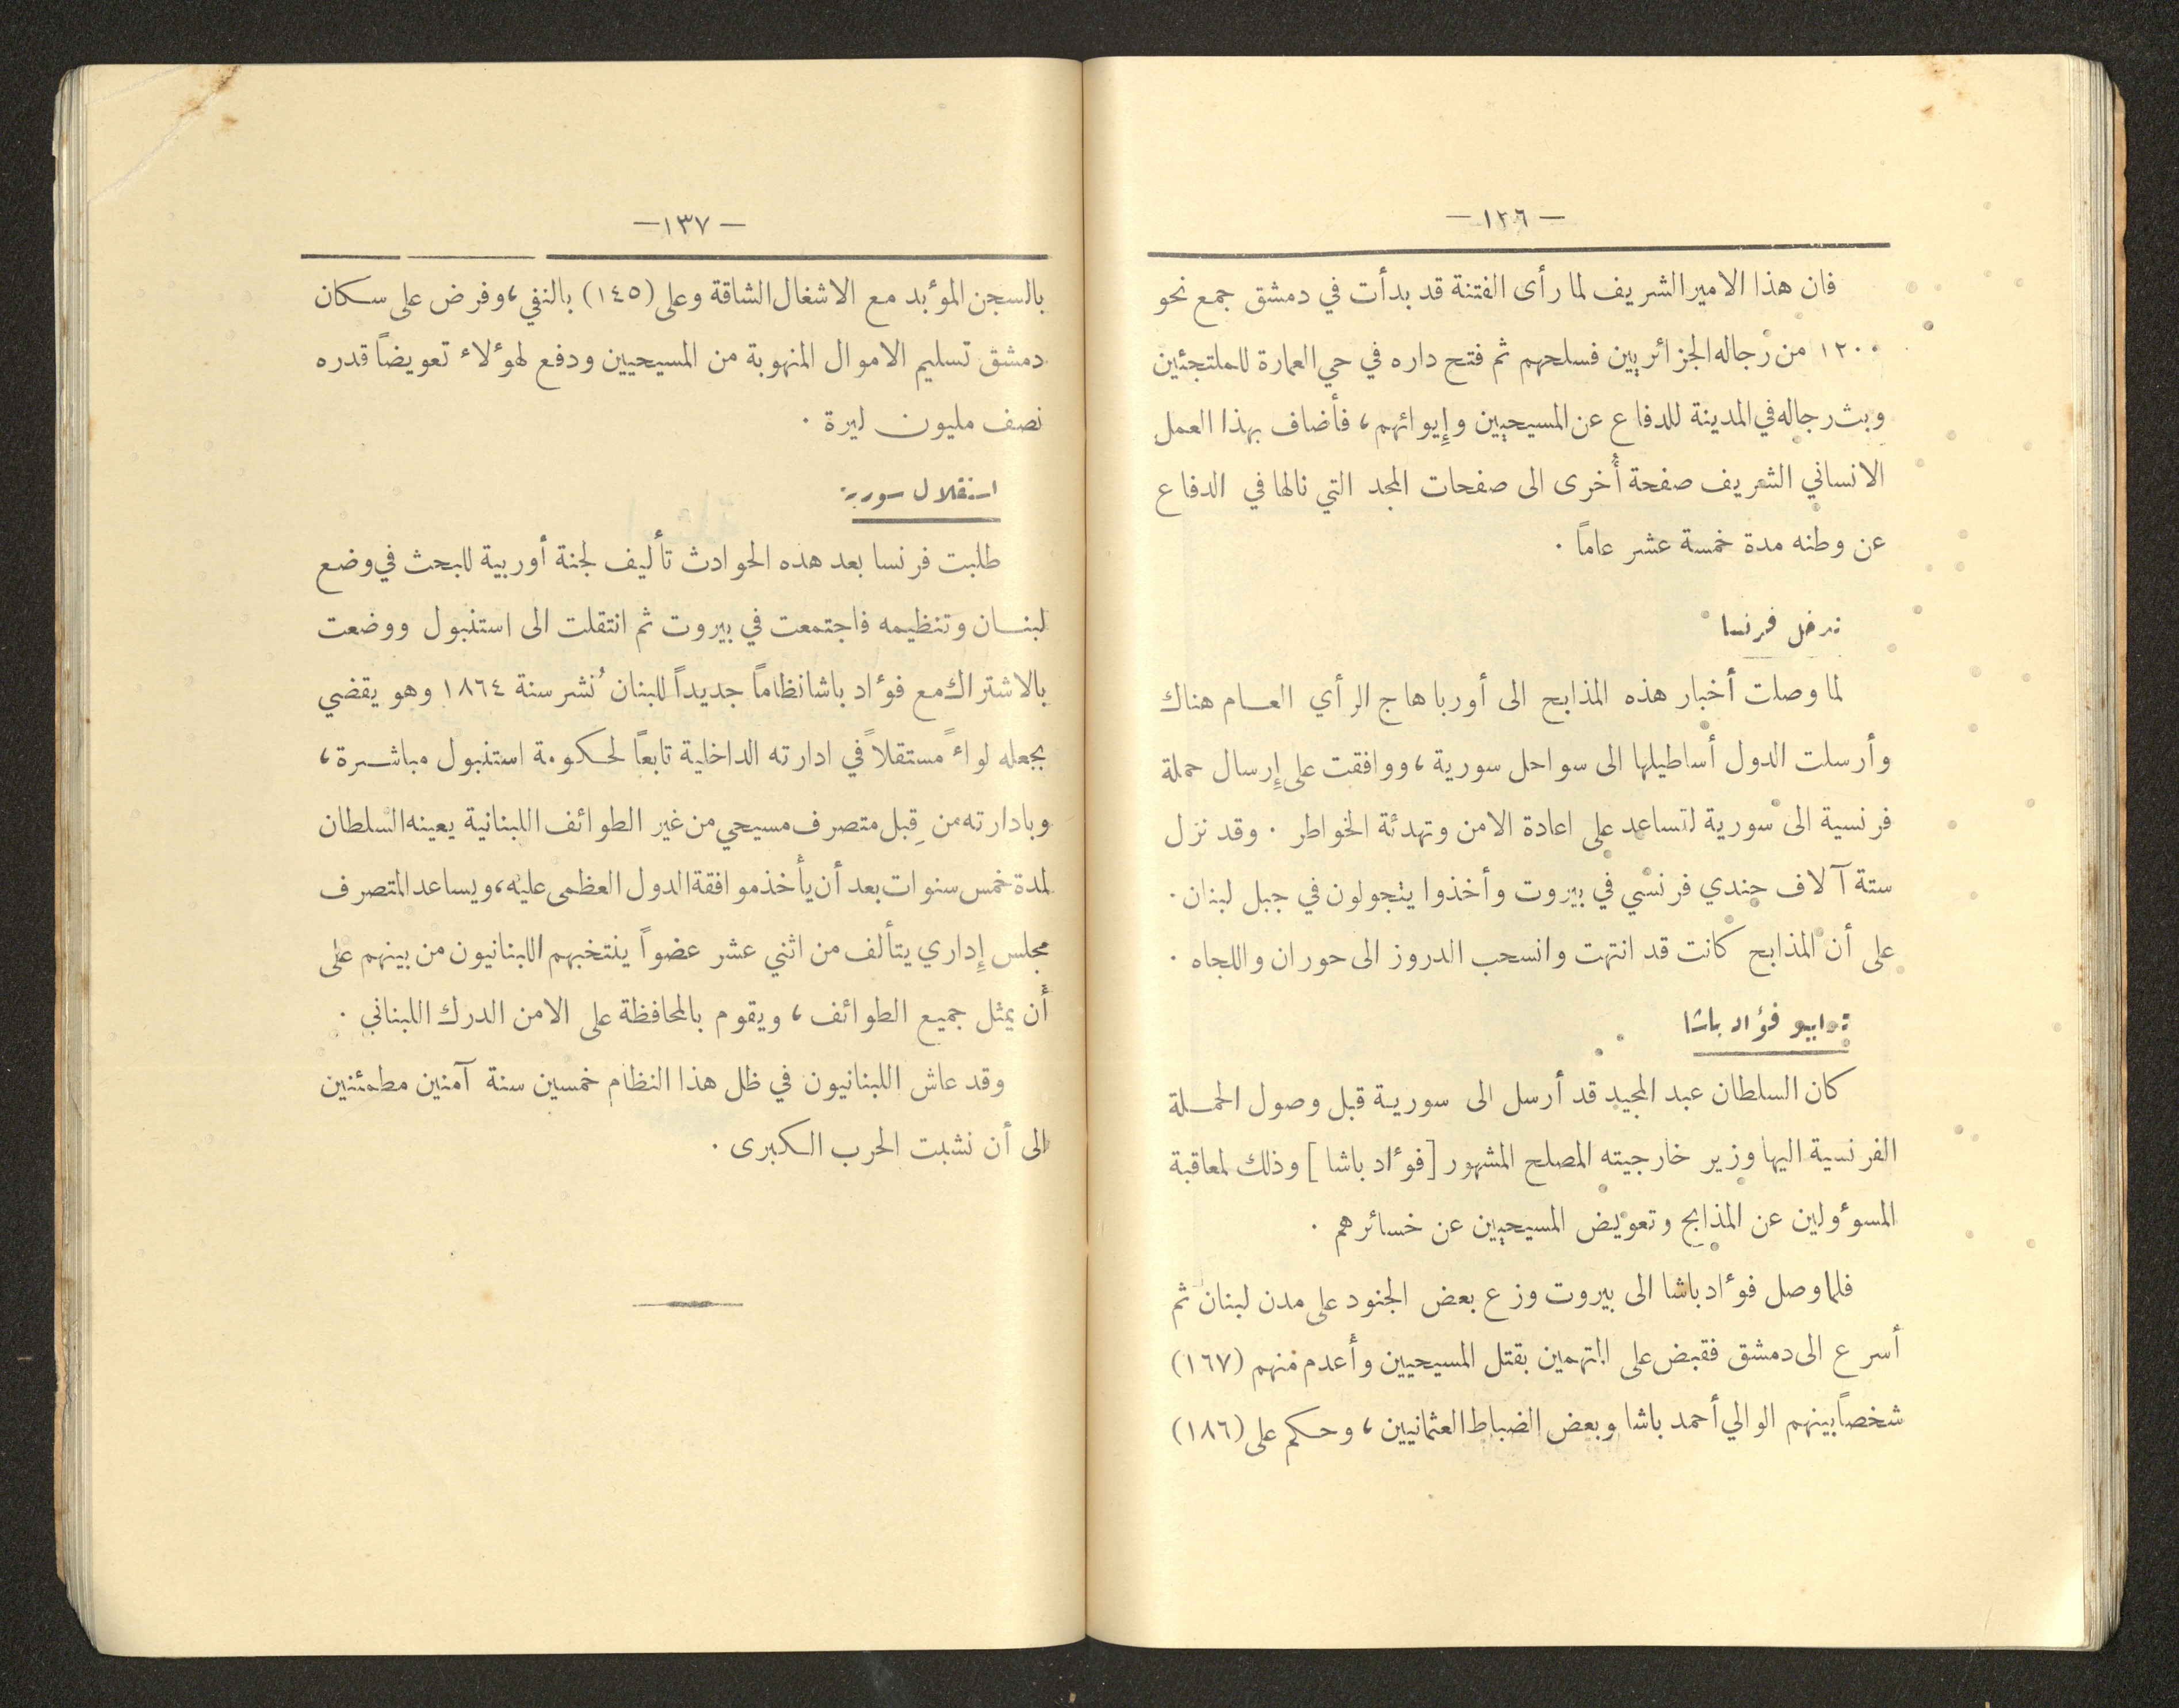 — ١٣٦ —
فان هذا الامير الشريف لما رأى الفتنة قد بدأت في دمشق جمع نحو
١٢٠٠ من رجاله الجزائريين فسلحهم ثم فتح داره في حي العمارة للملتجئين
وبث رجاله في المدينة للدفاع عن المسيحيين وإيوائهم ، فأضاف بهذا العمل
الانساني الشريف صفحة أخرى الى صفحات المجد التي نالها في الدفاع
عن وطنه مدة خمسة عشر عاماً .
تدخل فرنسا
لما وصلت أخبار هذه المذابح الى أوربا هاج الرأي العام هناك
وأرسلت الدول أساطيلها الى سواحل سورية ، ووافقت على إرسال حملة
فرنسية الى سورية لتساعد على اعادة الامن وتهدئة الخواطر . وقد نزل
ستة آلاف جندي فرنسي في بيروت وأخذوا يتجولون في جبل لبنان .
على أن المذابح كانت قد انتهت وانسحب الدروز الى حوران واللجاه .
تدابير فؤاد باشا
كان السلطان عبد المجيد قد أرسل الى سورية قبل وصول الحملة
الفرنسية اليها وزير خارجيته المصلح المشهور [فوٴاد باشا] وذلك لمعاقبة
المسوٴولين عن المذابح وتعويض المسيحيين عن خسائرهم .
فلما وصل فوٴاد باشا الى بيروت وزع بعض الجنود على مدن لبنان ثم
أسرع الى دمشق فقبض على المتهمين بقتل المسيحيين وأعدم منهم (١٦٧)
شخصاً بينهم الوالي أحمد باشا وبعض الضباط العثمانيين ، وحكم على (١٨٦)
— ١٣٧ —
بالسجن الموٴبد مع الاشغال الشاقة وعلى (١٤٥) بالنفي ، وفرض على سكان
دمشق تسليم الاموال المنهوبة من المسيحيين ودفع لهوٴلاء تعويضاً قدره
نصف مليون ليرة .
استقلال سورية
طلبت فرنسا بعد هذه الحوادث تأليف لجنة أوربية للبحث في وضع
لبنان وتنظيمه فاجتمعت في بيروت ثم انتقلت الى استنبول ووضعت
بالاشتراك مع فوٴاد باشا نظاماً جديداً للبنان نُشر سنة ١٨٦٤ وهو يقضي
بجعله لواءً مستقلاً في ادارته الداخلية تابعاً لحكومة استنبول مباشرة ،
وبادارته من قِبل متصرف مسيحي من غير الطوائف اللبنانية يعينه السلطان
لمدة خمس سنوات بعد أن يأخذ موافقة الدول العظمى عليه ، ويساعد المتصرف
مجلس إداري يتألف من اثني عشر عضواً ينتخبهم اللبنانيون من بينهم على
أن يمثل جميع الطوائف ، ويقوم بالمحافظة على الامن الدرك اللبناني .
وقد عاش اللبنانيون في ظل هذا النظام خمسين سنة آمنين مطمئنين
الى أن نشبت الحرب الكبرى .